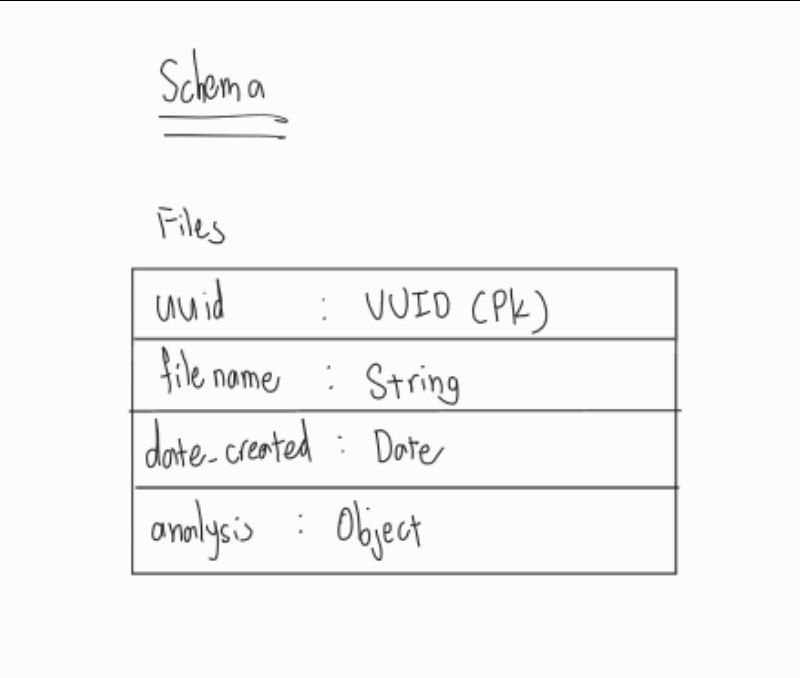 Schema
Files
uuid : UUID (Pk)
filename : String
date_created : Date
analysis : Object